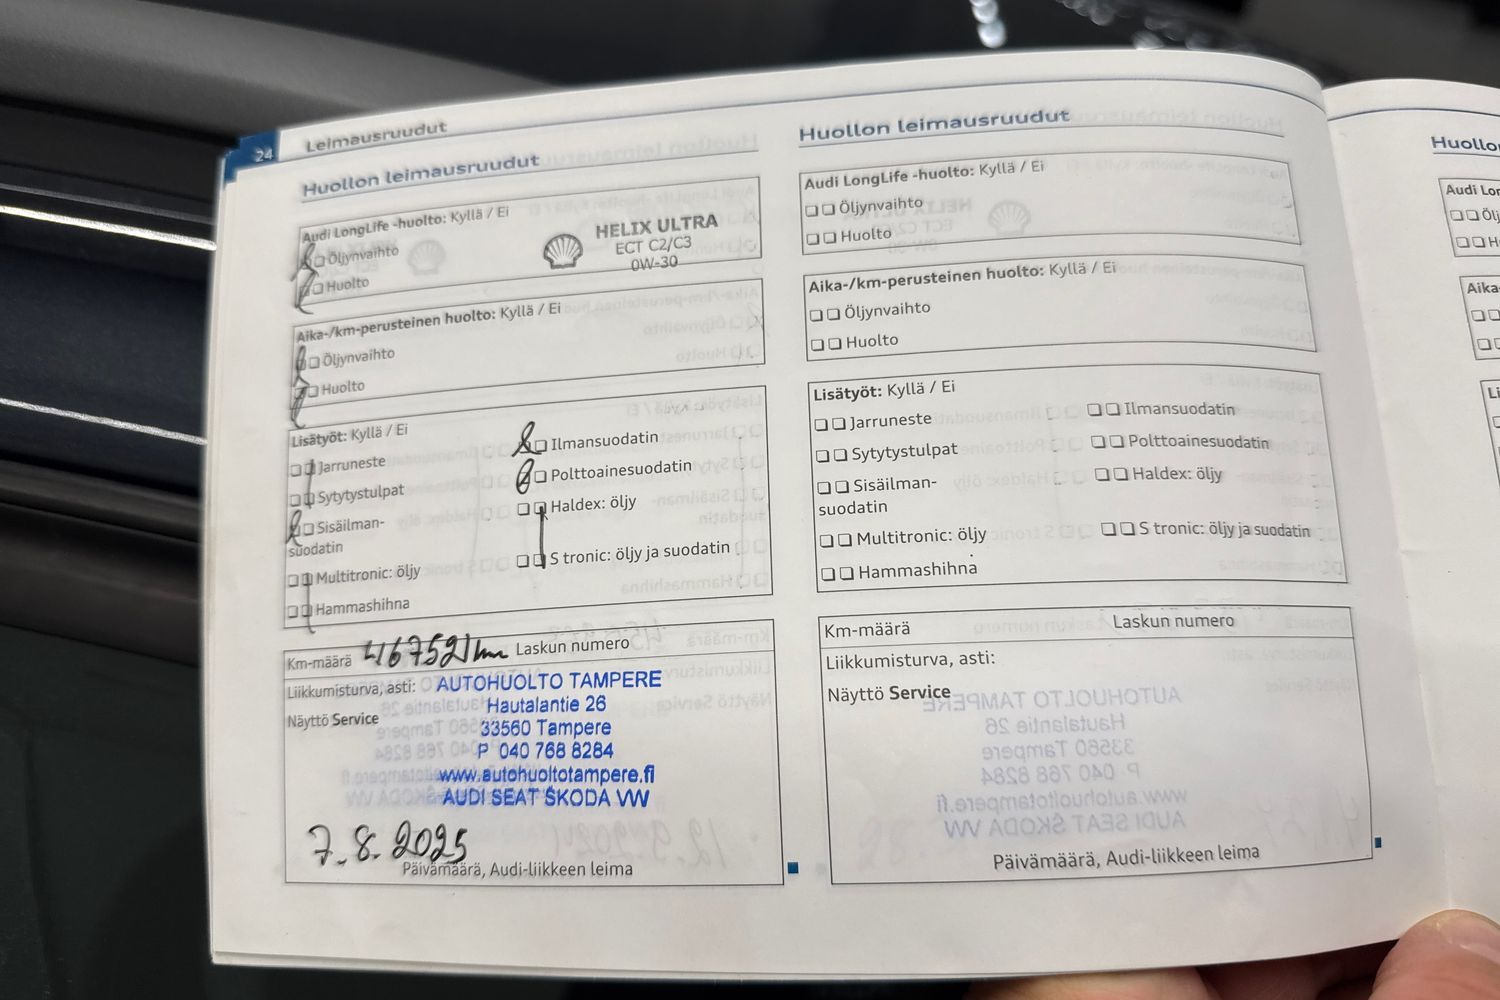 24
Leimausruudut
Huollon leimausruudut
Audi LongLife -huolto: Kyllä / Ei
Öljynvaihto
Huolto
HELIX ULTRA
ECT C2/C3
0W-30
Aika-/km-perusteinen huolto: Kyllä / Ei
Öljynvaihto
Huolto
Lisätyöt: Kyllä / Ei
Jarruneste
Sytytystulpat
Sisäilman-
suodatin
Multitronic: öljy
Hammashihna
Ilmansuodatin
Polttoainesuodatin
Haldex: öljy
S tronic: öljy ja suodatin
Km-määrä 416752 km Laskun numero
Liikkumisturva, asti:
Näyttö Service
AUTOHUOLTO TAMPERE
Hautalantie 26
33560 Tampere
P 040 768 8284
www.autohuoltotampere.fi
AUDI SEAT ŠKODA VW
7.8.2025
Päivämäärä, Audi-liikkeen leima
Huollon leimausruudut
Audi LongLife -huolto: Kyllä / Ei
Öljynvaihto
Huolto
Aika-/km-perusteinen huolto: Kyllä / Ei
Öljynvaihto
Huolto
Lisätyöt: Kyllä / Ei
Jarruneste
Sytytystulpat
Sisäilman-
suodatin
Multitronic: öljy
Hammashihna
Ilmansuodatin
Polttoainesuodatin
Haldex: öljy
S tronic: öljy ja suodatin
Km-määrä
Laskun numero
Liikkumisturva, asti:
Näyttö Service
Päivämäärä, Audi-liikkeen leima
Audi
Aika-